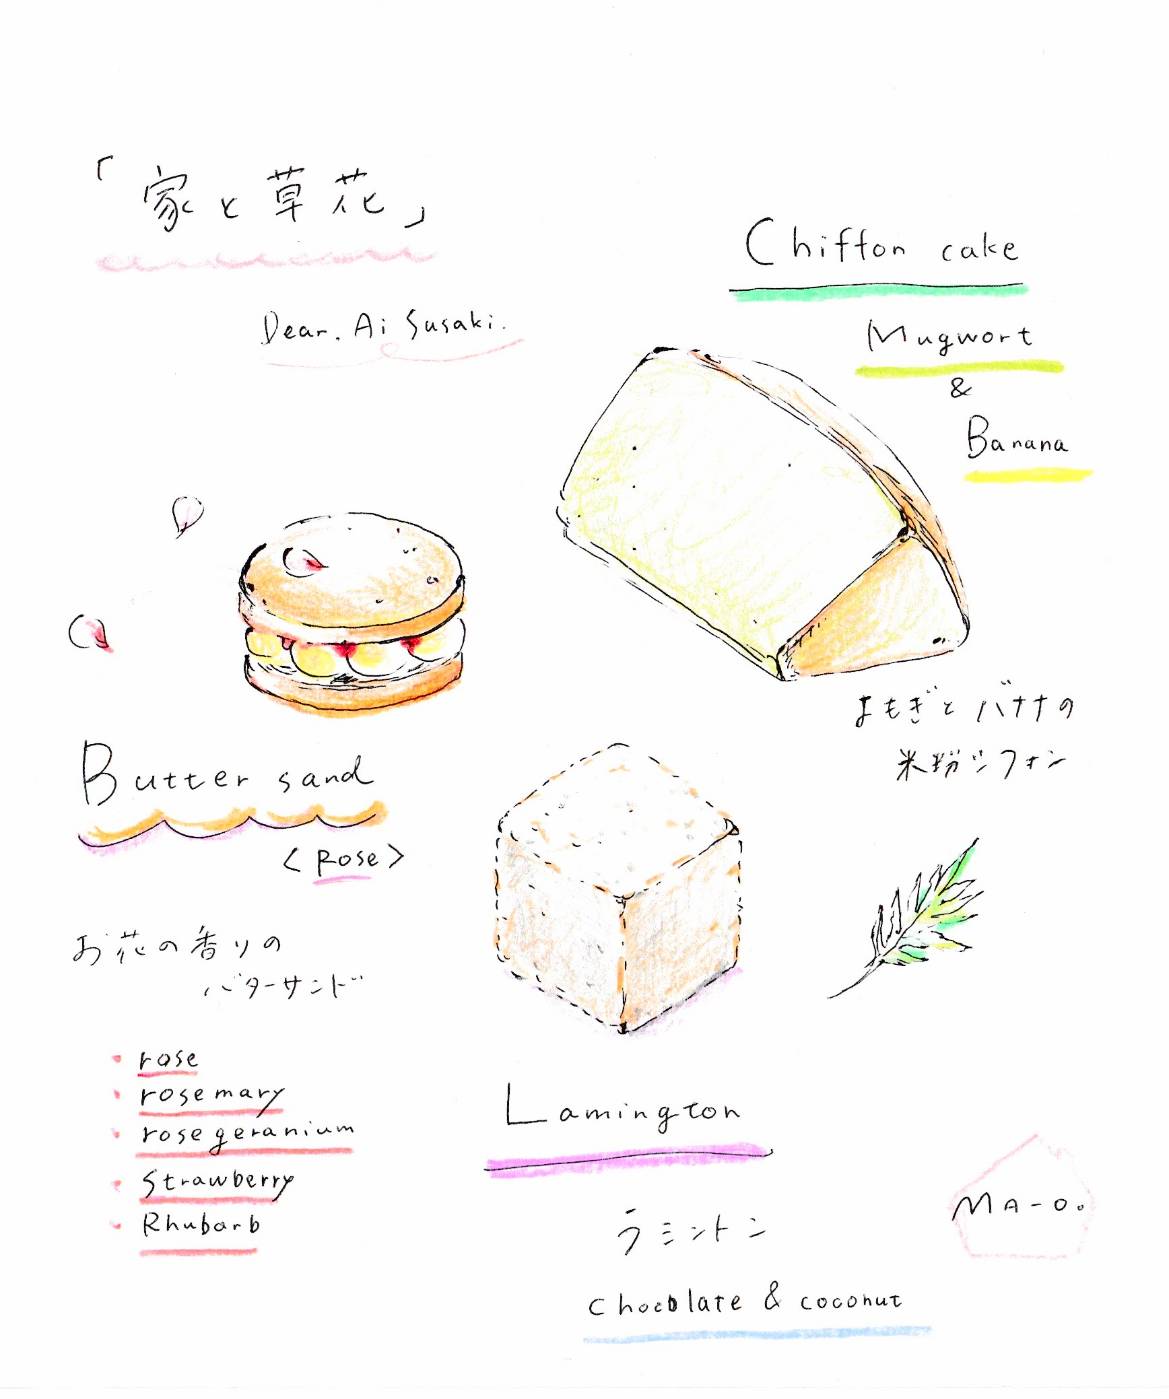 「家と草花」
Dear. Ai Susaki.
Chiffon cake
Mugwort
&
Banana
よもぎとバナナの
米粉シフォン
Butter sand
<Rose>
お花の香りの
バターサンド
・rose
・rosemary
・rose geranium
・Strawberry
・Rhubarb
Lamington
ラミントン
chocolate & coconut
MA-O。